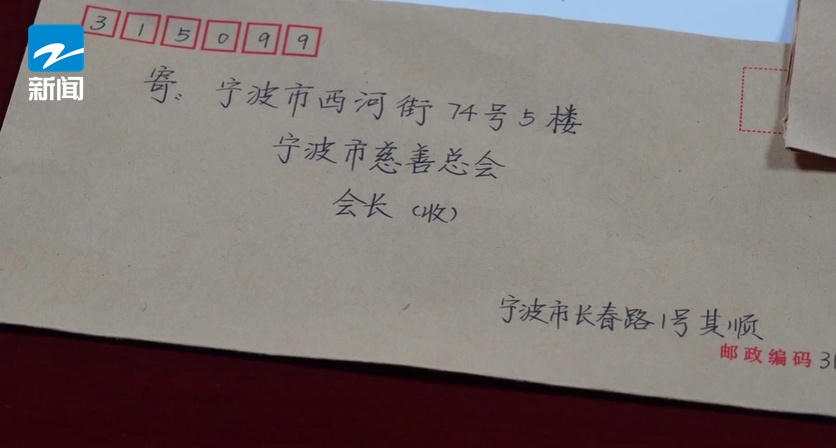 新闻
315099
寄：宁波市西河街74号5楼
宁波市慈善总会
会长（收）
宁波市长春路1号其顺
邮政编码 31